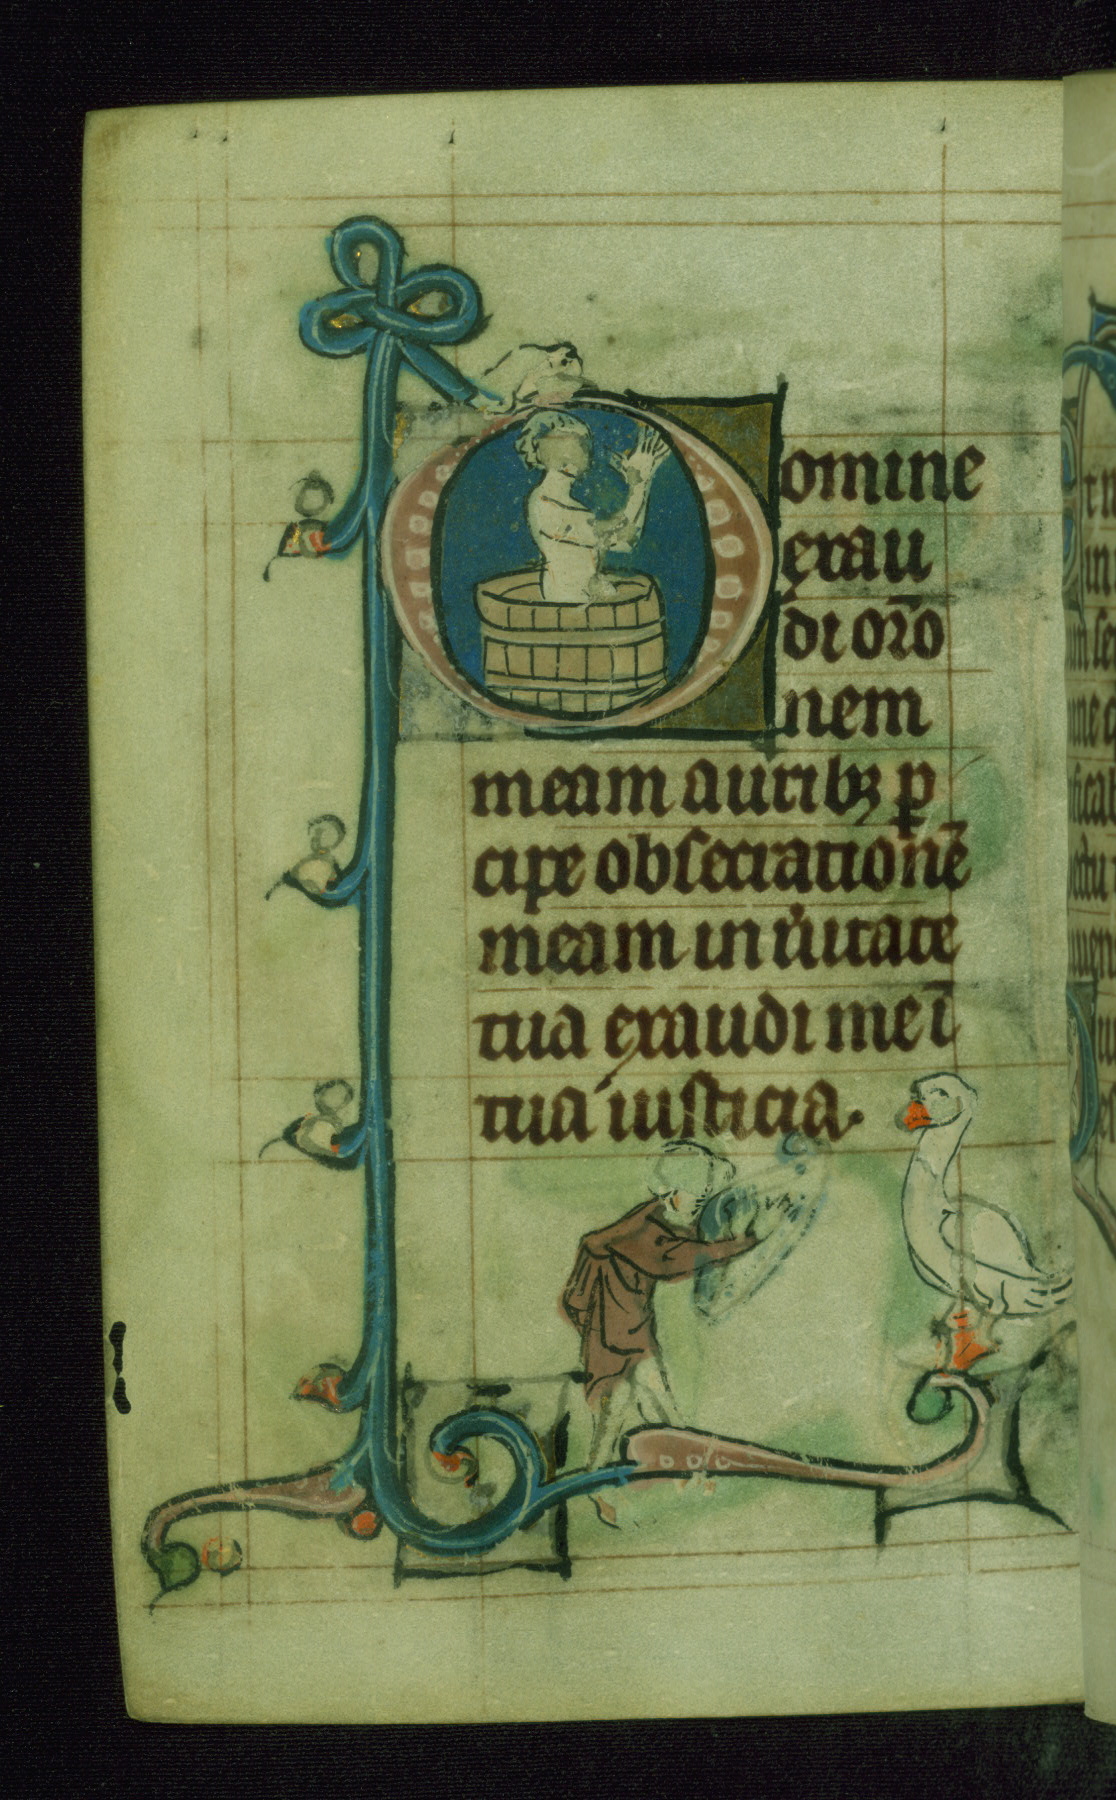 Domine
exau
di or̄o
nem
meam aurib⁊ ꝑ
cipe obsecrationē
meam in ũitate
tua exaudi me ī
tua iusticia.